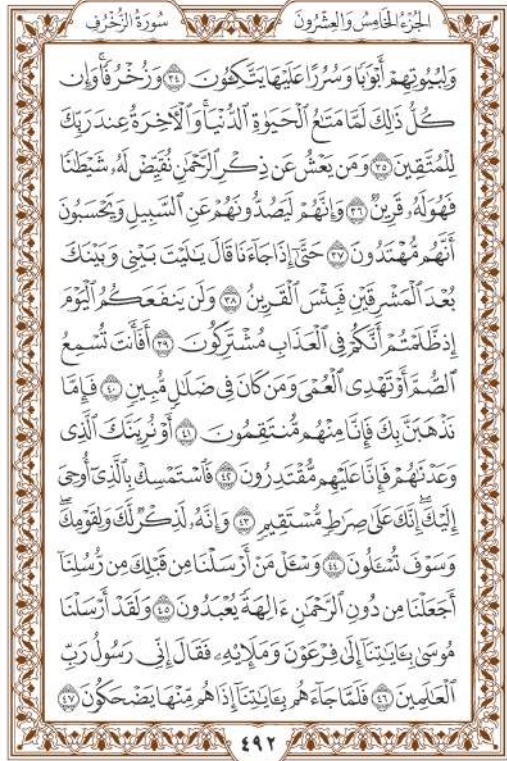 الجُزْءُ الخَامِسُ وَالعِشْرُونَ
سُورَةُ الزُّخْرُفِ
وَلِبُيُوتِهِمْ أَبْوَٰبًا وَسُرُرًا عَلَيْهَا يَتَّكِـُٔونَ ٣٤ وَزُخْرُفًا ۚ وَإِن
كُلُّ ذَٰلِكَ لَمَّا مَتَٰعُ ٱلْحَيَوٰةِ ٱلدُّنْيَا ۚ وَٱلْـَٔاخِرَةُ عِندَ رَبِّكَ
لِلْمُتَّقِينَ ٣٥ وَمَن يَعْشُ عَن ذِكْرِ ٱلرَّحْمَٰنِ نُقَيِّضْ لَهُۥ شَيْطَٰنًا
فَهُوَ لَهُۥ قَرِينٌ ٣٦ وَإِنَّهُمْ لَيَصُدُّونَهُمْ عَنِ ٱلسَّبِيلِ وَيَحْسَبُونَ
أَنَّهُم مُّهْتَدُونَ ٣٧ حَتَّىٰٓ إِذَا جَآءَنَا قَالَ يَٰلَيْتَ بَيْنِى وَبَيْنَكَ
بُعْدَ ٱلْمَشْرِقَيْنِ فَبِئْسَ ٱلْقَرِينُ ٣٨ وَلَن يَنفَعَكُمُ ٱلْيَوْمَ
إِذ ظَّلَمْتُمْ أَنَّكُمْ فِى ٱلْعَذَابِ مُشْتَرِكُونَ ٣٩ أَفَأَنتَ تُسْمِعُ
ٱلصُّمَّ أَوْ تَهْدِى ٱلْعُمْىَ وَمَن كَانَ فِى ضَلَٰلٍ مُّبِينٍ ٤٠ فَإِمَّا
نَذْهَبَنَّ بِكَ فَإِنَّا مِنْهُم مُّنتَقِمُونَ ٤١ أَوْ نُرِيَنَّكَ ٱلَّذِى
وَعَدْنَٰهُمْ فَإِنَّا عَلَيْهِم مُّقْتَدِرُونَ ٤٢ فَٱسْتَمْسِكْ بِٱلَّذِىٓ أُوحِىَ
إِلَيْكَ ۖ إِنَّكَ عَلَىٰ صِرَٰطٍ مُّسْتَقِيمٍ ٤٣ وَإِنَّهُۥ لَذِكْرٌ لَّكَ وَلِقَوْمِكَ ۖ
وَسَوْفَ تُسْـَٔلُونَ ٤٤ وَسْـَٔلْ مَنْ أَرْسَلْنَا مِن قَبْلِكَ مِن رُّسُلِنَآ
أَجَعَلْنَا مِن دُونِ ٱلرَّحْمَٰنِ ءَالِهَةً يُعْبَدُونَ ٤٥ وَلَقَدْ أَرْسَلْنَا
مُوسَىٰ بِـَٔايَٰتِنَآ إِلَىٰ فِرْعَوْنَ وَمَلَإِي۟هِۦ فَقَالَ إِنِّى رَسُولُ رَبِّ
ٱلْعَٰلَمِينَ ٤٦ فَلَمَّا جَآءَهُم بِـَٔايَٰتِنَآ إِذَا هُم مِّنْهَا يَضْحَكُونَ ٤٧
٤٩٢